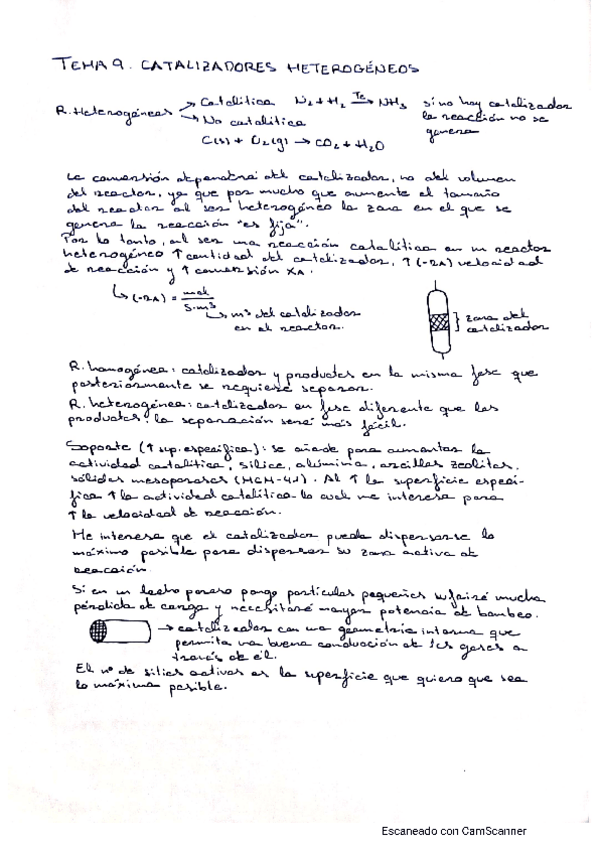 TEMA 9. CATALIZADORES HETEROGÉNEOS
R. Heterogéneas → Catalítica N₂ + H₂ →(Fe) NH₃ si no hay catalizador la reacción no se genera
→ No catalítica
C(s) + O₂(g) → CO₂ + H₂O
La conversión dependerá del catalizador, no del volumen
del reactor, ya que por mucho que aumente el tamaño
del reactor al ser heterogéneo la zona en el que se
genera la reacción "es fija".
Por lo tanto, al ser una reacción catalítica en un reactor
heterogéneo ↑ cantidad del catalizador, ↑ (-rA) velocidad
de reacción y ↑ conversión XA.
↳ (-rA) = mol / s·m³
↳ m³ del catalizador
en el reactor.
zona del
catalizador
R. homogénea: catalizador y productos en la misma fase que
posteriormente se requiere separar.
R. heterogénea: catalizador en fase diferente que los
productos, la separación será más fácil.
Soporte (↑ sup. específica): se añade para aumentar la
actividad catalítica, sílice, alúmina, arcillas zeolitas,
sólidos mesoporosos (MCM-41). Al ↑ la superficie especí-
fica ↑ la actividad catalítica lo cual me interesa para
↑ la velocidad de reacción.
Me interesa que el catalizador pueda dispersarse lo
máximo posible para dispersar su zona activa de
reacción.
Si en un lecho poroso pongo partículas pequeñas sufriré mucha
pérdida de carga y necesitaré mayor potencia de bombeo.
→ catalizador con una geometría interna que
permita una buena conducción de los gases a
través de él.
El nº de sitios activos es la superficie que quiero que sea
lo máxima posible.
Escaneado con CamScanner